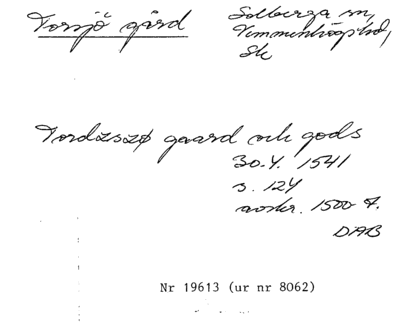 Torsjö gård
Solberga sn,
Vemmenhögs hd,
Sk
Tordzszø gaard och gods
30.4. 1541
s. 124
avskr. 1500-t.
DAB
Nr 19613 (ur nr 8062)